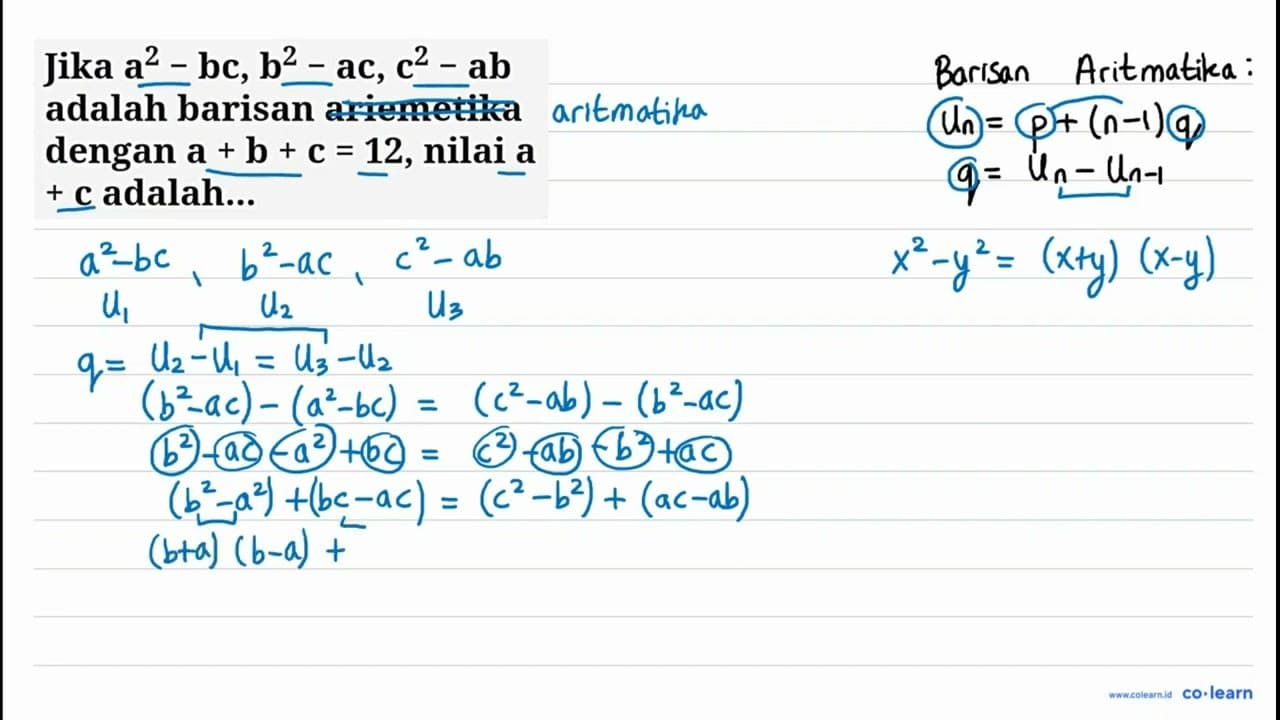 Jika a² − bc, b² − ac, c² − ab
adalah barisan ariemetika aritmatika
dengan a + b + c = 12, nilai a
+ c adalah...
Barisan Aritmatika:
Un = p + (n-1) q
q = Un - Un-1
x² - y² = (x+y) (x-y)
a²-bc , b²-ac , c²-ab
U1 U2 U3
q = U2 - U1 = U3 - U2
(b²-ac) - (a²-bc) = (c²-ab) - (b²-ac)
b² - ac - a² + bc = c² - ab - b² + ac
(b²-a²) + (bc-ac) = (c²-b²) + (ac-ab)
(b+a) (b-a) +
www.colearn.id co·learn